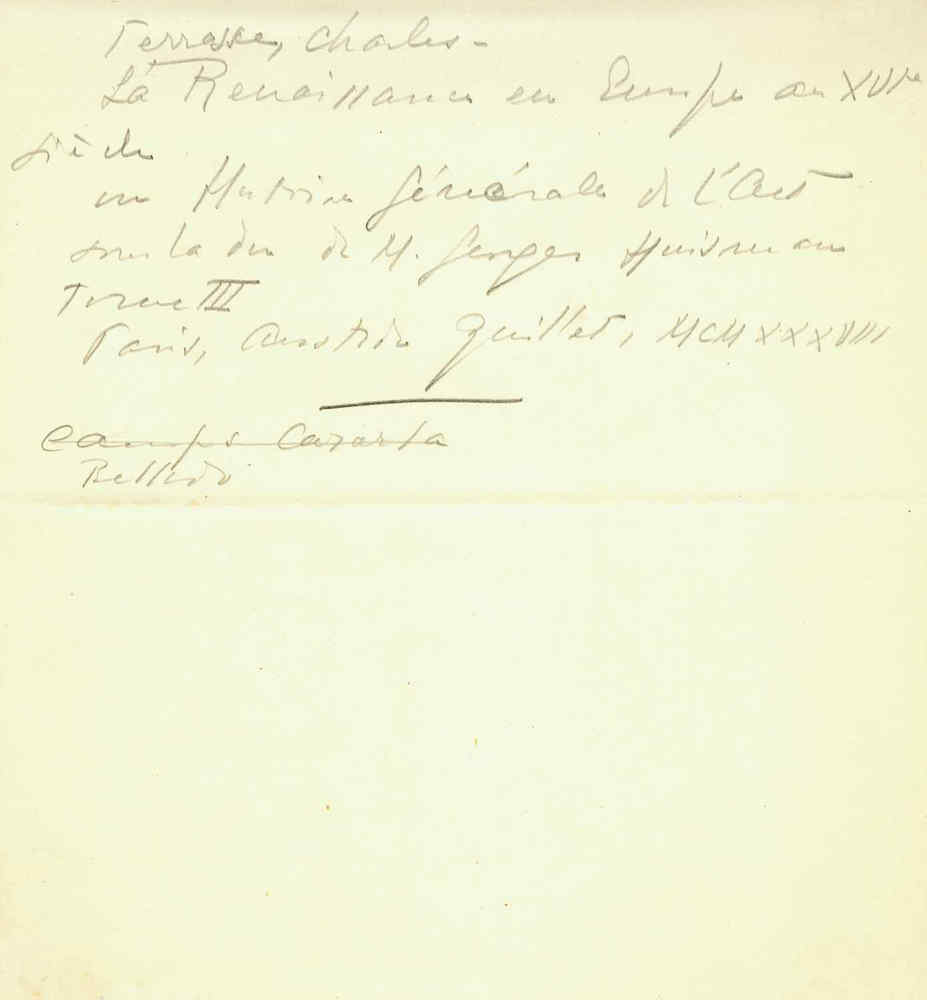 Terrasse, Charles -
La Renaissance en Europe au XVIe
siècle
en Histoire Générale de L'Art
sous la dir de M. Georges Huisman
Tome III
Paris, Aristide Quillet, MCMXXXVIII
Camps Cazorla
Bellido